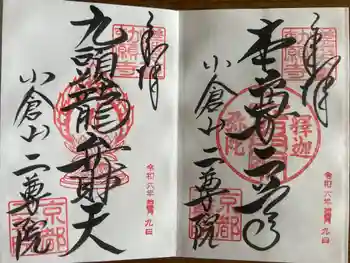 奉拝
本尊二尊
釋迦
弥陀
小倉山 二尊院
京都
令和六年
奉拝
九頭龍弁財天
小倉山 二尊院
京都
令和六年